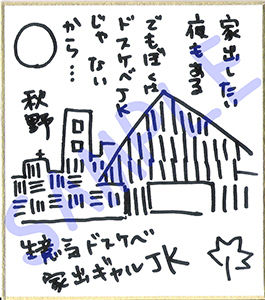 家出したい
夜もある
でもぼくは
ドスケベJK
じゃない
から…
秋野
生意気ドスケベ
家出ギャルJK
SAMPLE